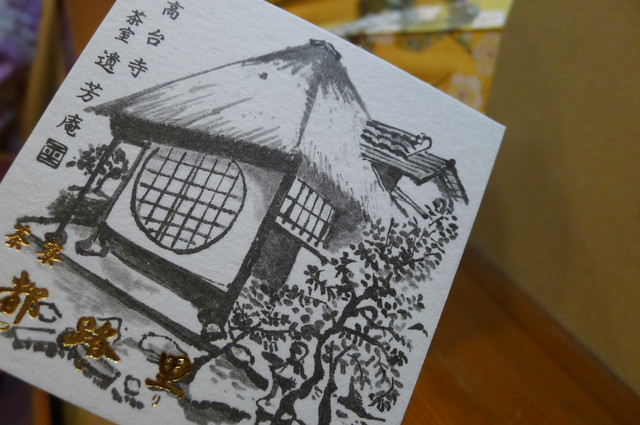 高台寺
茶室 遺芳庵
茶寮
都路里